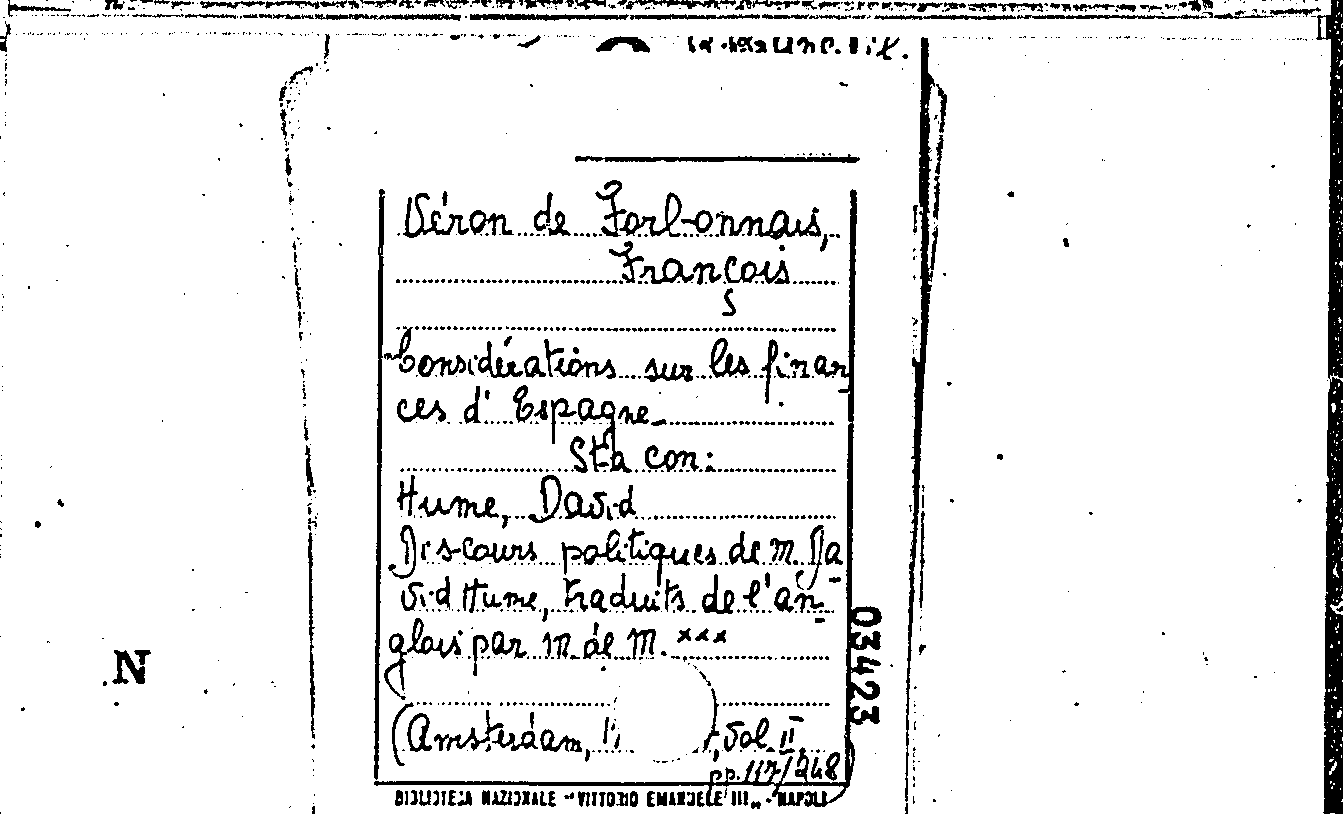 Véron de Forbonnais,
François
Considérations sur les finan
ces d'Espagne
Sta con:
Hume, David
Discours politiques de m. Da
vid Hume, traduits de l'an
glais par m. de M. xxx
(Amsterdam, , vol. II
pp. 117/248)
BIBLIOTECA NAZIONALE "VITTORIO EMANUELE III" - NAPOLI
03423
N